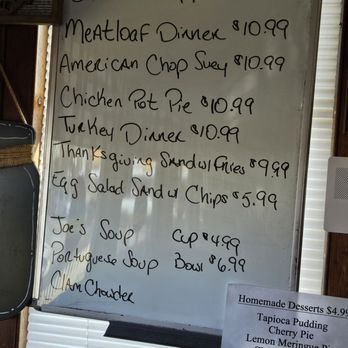 Meatloaf Dinner $10.99
American Chop Suey $10.99
Chicken Pot Pie $10.99
Turkey Dinner $10.99
Thanksgiving Sand w/ Fries $9.99
Egg Salad Sand w/ Chips $5.99
Joe's Soup Cup $4.99
Portuguese Soup Bowl $6.99
Clam Chowder
Homemade Desserts $4.99
Tapioca Pudding
Cherry Pie
Lemon Meringue